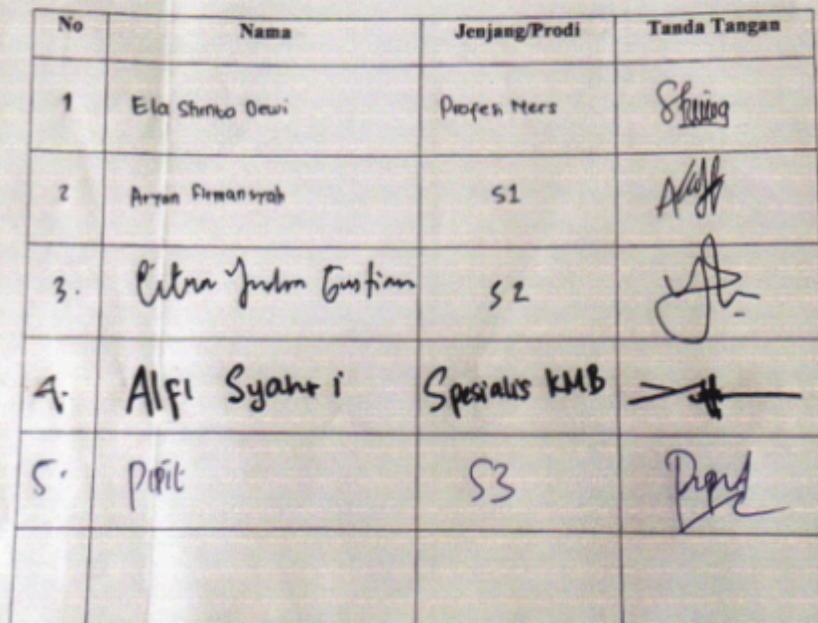 No Nama Jenjang/Prodi Tanda Tangan
1 Ela Shinta Dewi Profesi Ners
2 Aryan Firmansyah S1
3. Citra Indra Gustian S2
4. Alfi Syahri Spesialis KMB
5. Pipit S3